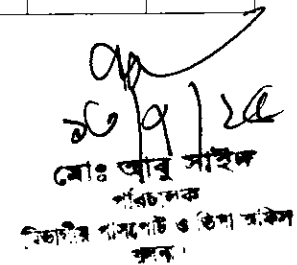 ১৩/৭/২৫
মোঃ আবু সাইদ
পরিচালক
বিভাগীয় পাসপোর্ট ও ভিসা অফিস
খুলনা।